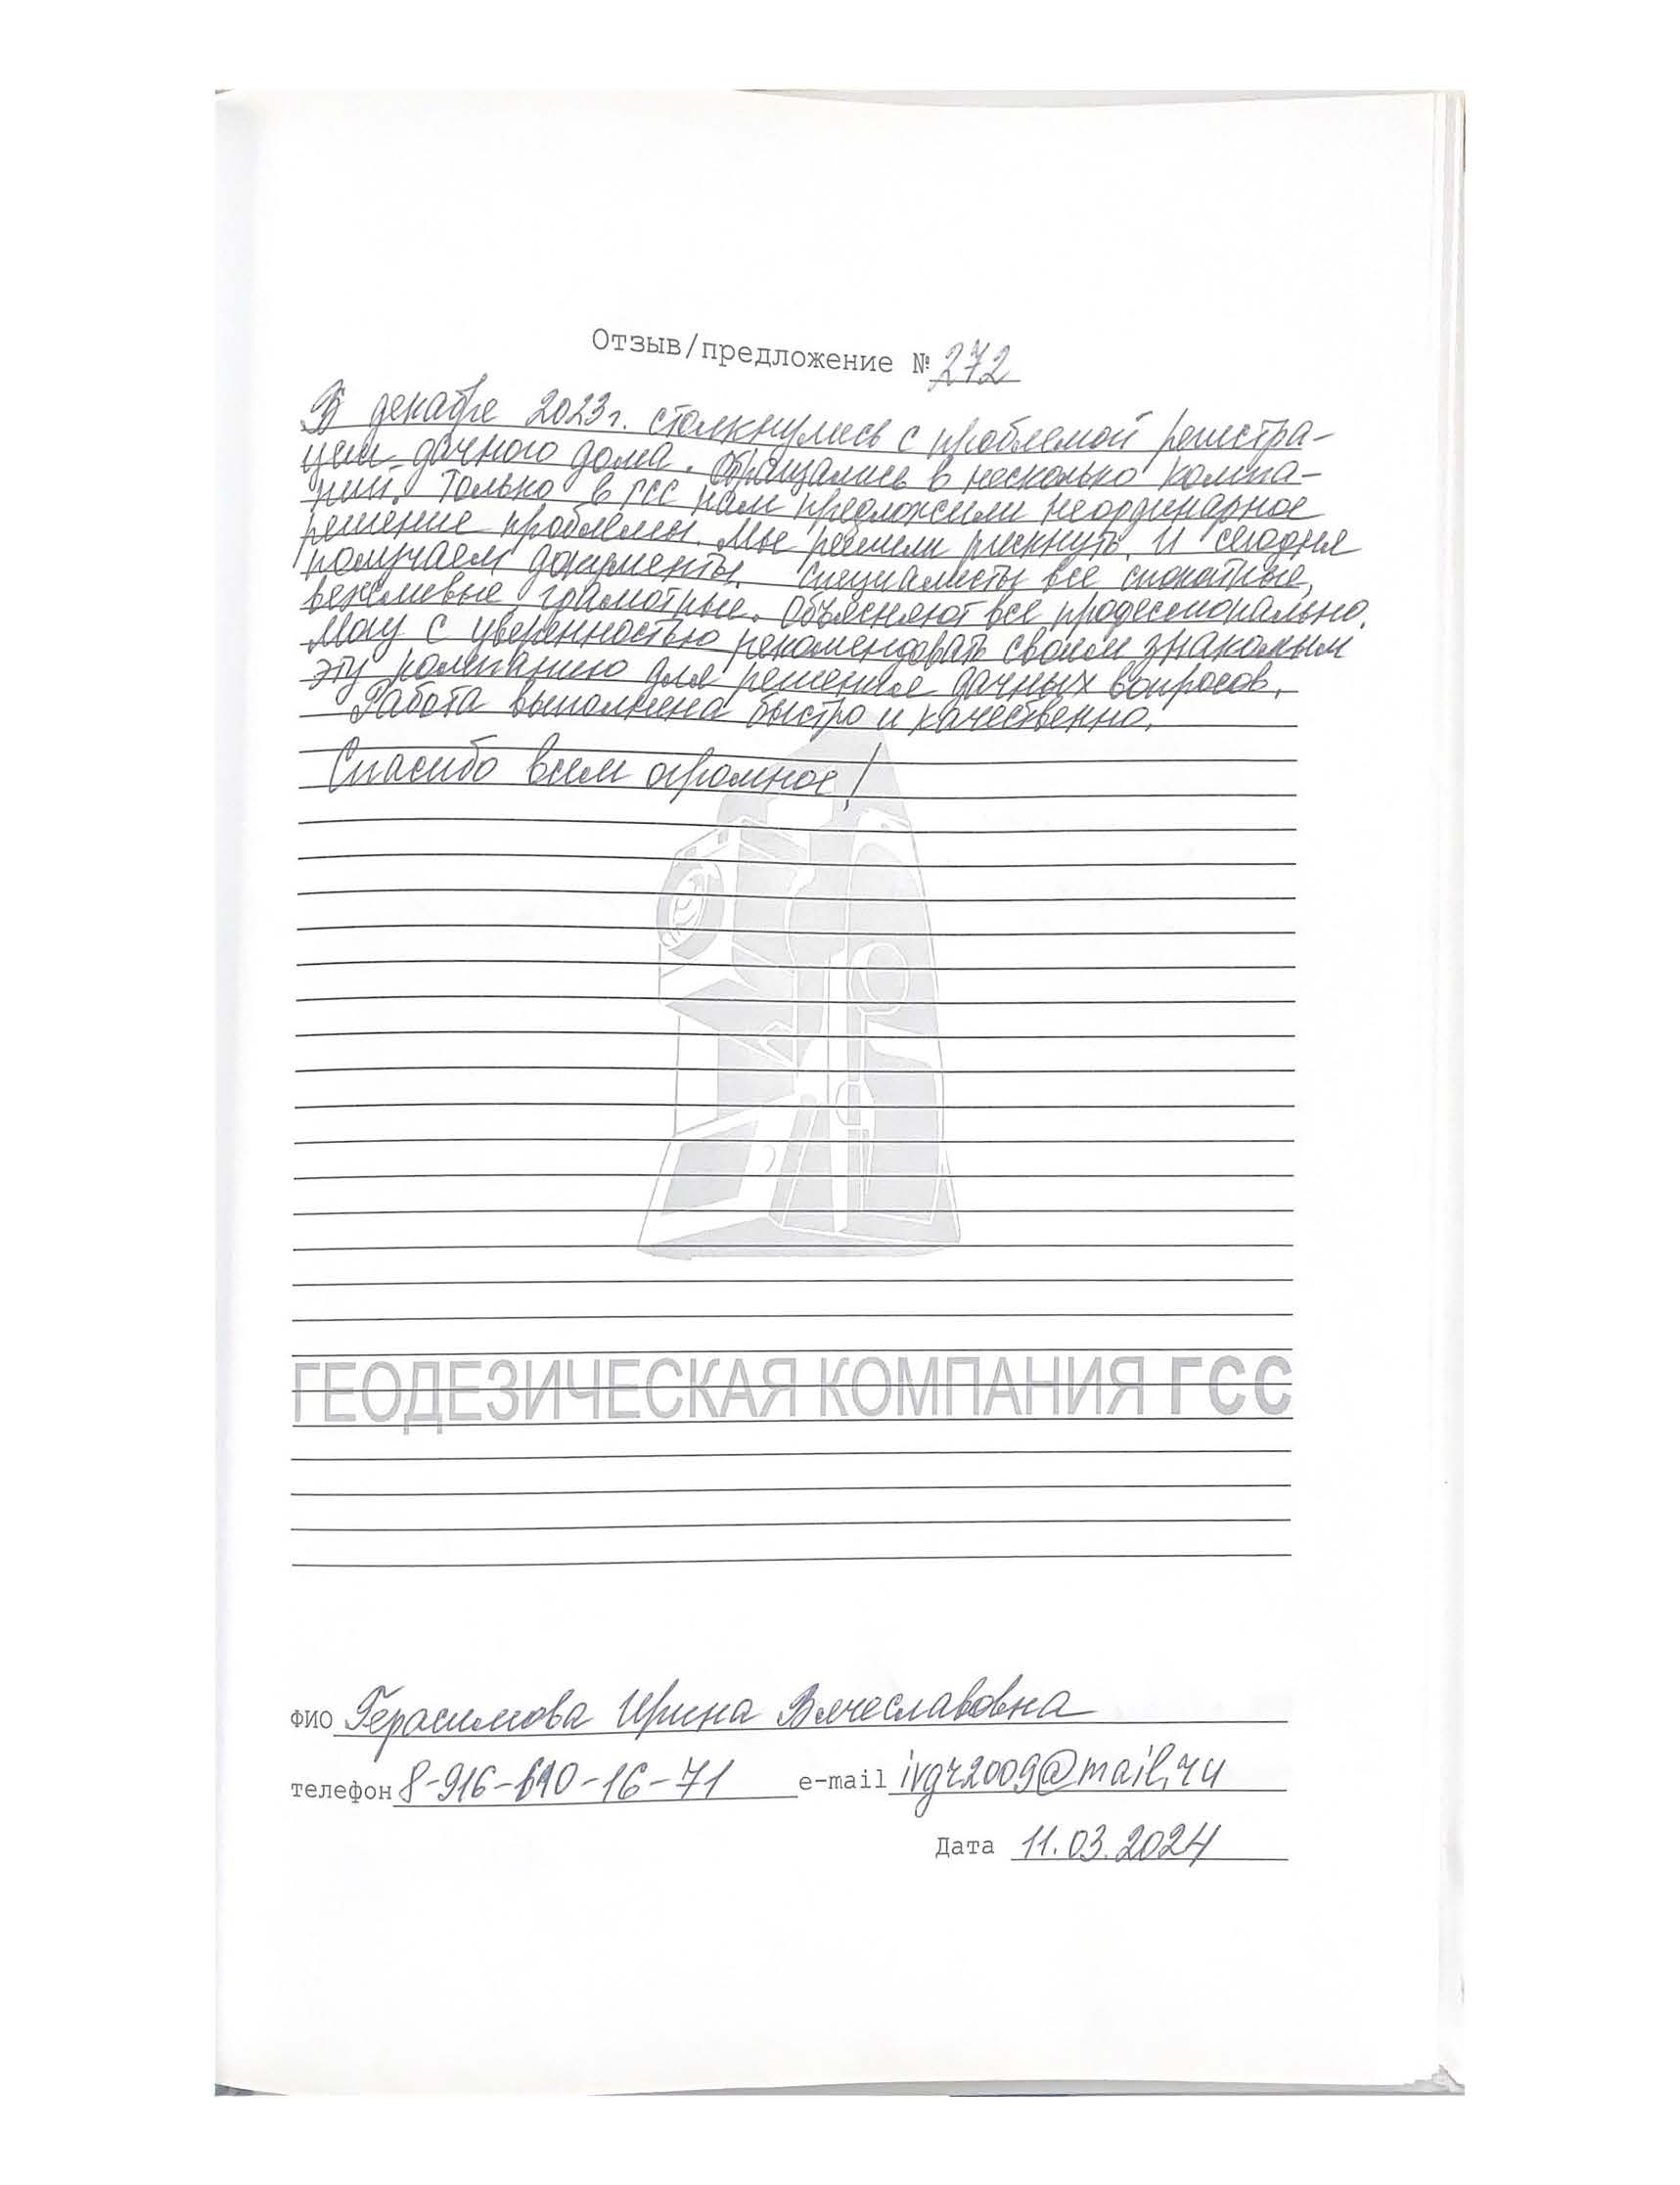 Отзыв/предложение № 272
В декабре 2023г. столкнулись с проблемой регистра-
ции дачного дома. Обращались в несколько компа-
ний. Только в ГСС нам предложили неординарное
решение проблемы. Мы решили рискнуть. И сегодня
получаем документы. Специалисты все
вежливые грамотные. Объясняют все профессионально.
Могу с уверенностью рекомендовать своим знакомым
эту компанию для решения дачных вопросов.
Работа выполнена быстро и качественно.
Спасибо всем огромное!
ГЕОДЕЗИЧЕСКАЯ КОМПАНИЯ ГСС
ФИО Герасимова Ирина Вячеславовна
телефон 8-916-610-16-71 e-mail ivgr2009@mail.ru
Дата 11.03.2024